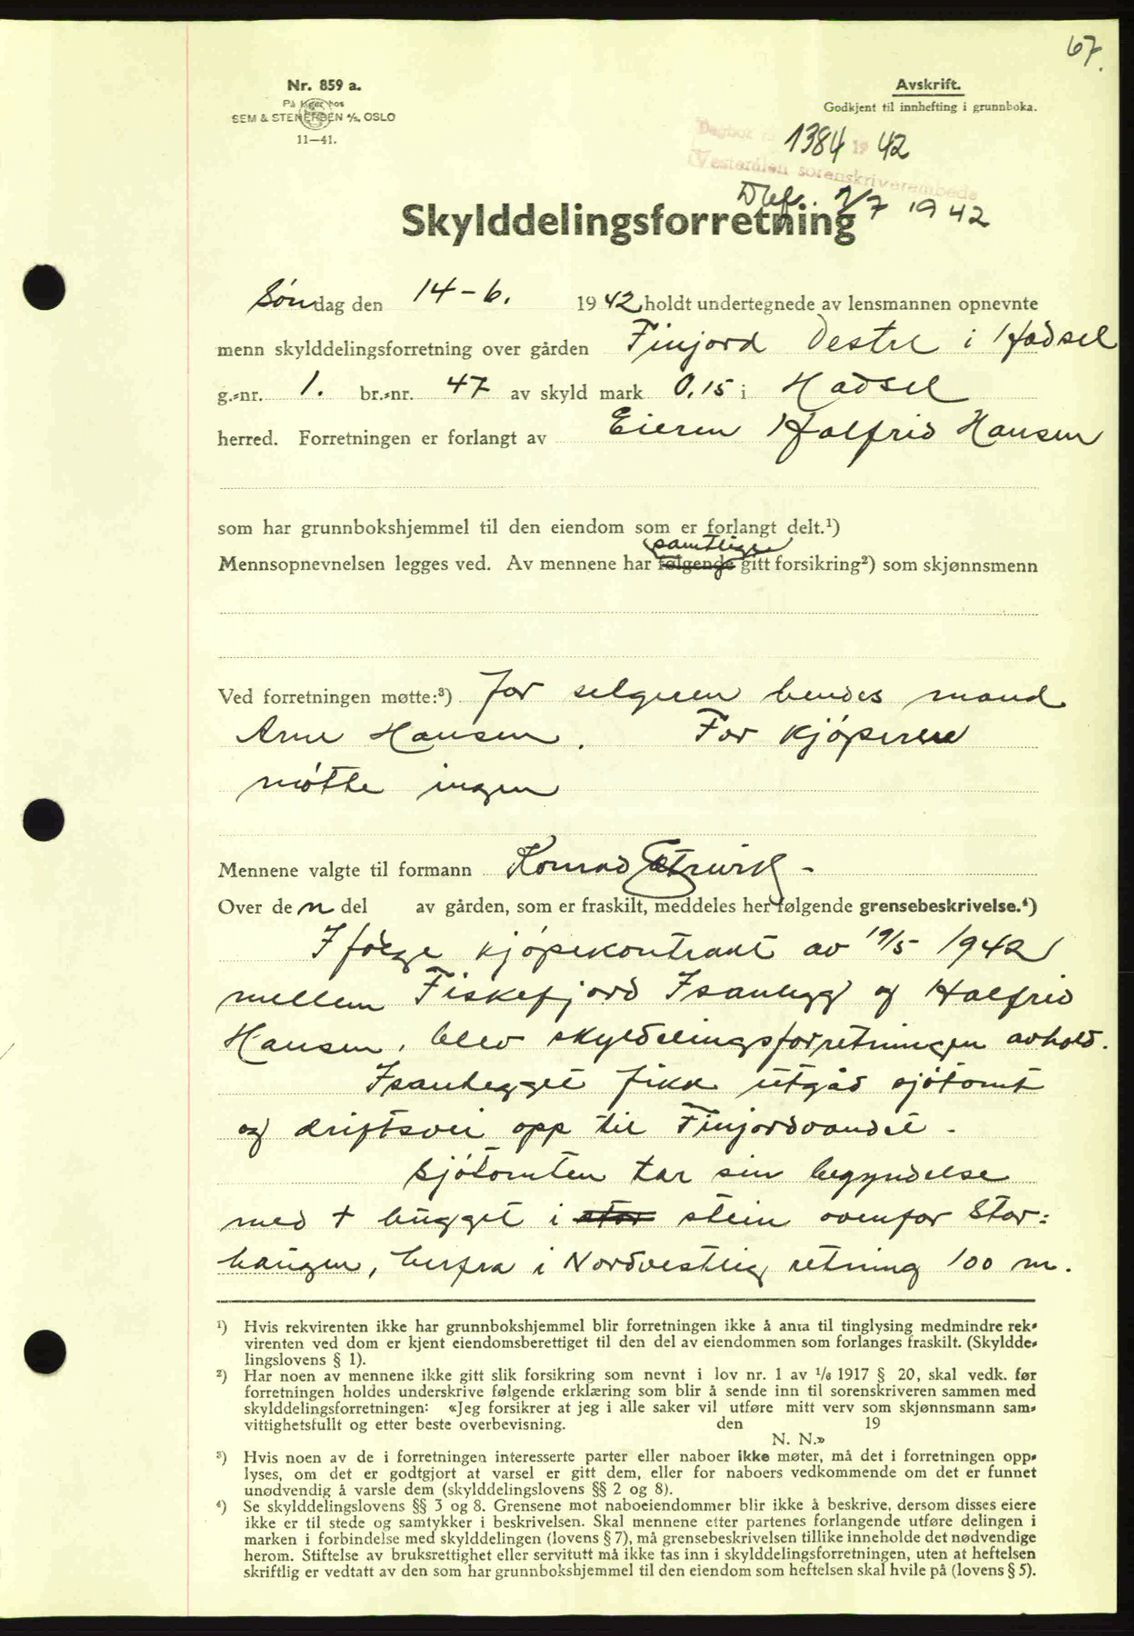 67.
Nr. 859 a.
På lager hos
SEM & STENERSEN A/S, OSLO
11—41.
Avskrift.
Godkjent til innhefting i grunnboka.
Dagbok 1384 19 42
Vesterålen sorenskriverembede
2/7 1942
Skylddelingsforretning
Søndag den 14-6. 1942 holdt undertegnede av lensmannen opnevnte
menn skylddelingsforretning over gården Finjord Vestre i Hadsel
g.-nr. 1. br.-nr. 47 av skyld mark 0,15 i Hadsel
herred. Forretningen er forlangt av Eieren Halfrid Hansen
som har grunnbokshjemmel til den eiendom som er forlangt delt.¹)
samtlige
Mennsopnevnelsen legges ved. Av mennene har følgende gitt forsikring²) som skjønnsmenn
Ved forretningen møtte:³) For selgeren hendes mand
Arne Hansen. For kjøperen
møtte ingen
Mennene valgte til formann Konrad -
Over den del av gården, som er fraskilt, meddeles her følgende grensebeskrivelse.⁴)
Ifølge kjøpekontrakt av 19/5 1942
mellem Fiskefjord Isanlegg og Halfrid
Hansen, blev skyldelingsforretningen avhold.
Isanlegget fikk utgåd sjøtomt
og driftsvei opp til Finjordvandet -
Sjøtomten tar sin begyndelse
med + hugget i stor stein ovenfor Stor=
haugen, herfra i Nordvestlig retning 100 m.
¹) Hvis rekvirenten ikke har grunnbokshjemmel blir forretningen ikke å anta til tinglysing medmindre rek-
virenten ved dom er kjent eiendomsberettiget til den del av eiendommen som forlanges fraskilt. (Skyldde-
lingslovens § 1).
²) Har noen av mennene ikke gitt slik forsikring som nevnt i lov nr. 1 av 1/6 1917 § 20, skal vedk. før
forretningen holdes underskrive følgende erklæring som blir å sende inn til sorenskriveren sammen med
skylddelingsforretningen: «Jeg forsikrer at jeg i alle saker vil utføre mitt verv som skjønnsmann sam-
vittighetsfullt og etter beste overbevisning. den 19
N. N.»
³) Hvis noen av de i forretningen interesserte parter eller naboer ikke møter, må det i forretningen opp-
lyses, om det er godtgjort at varsel er gitt dem, eller for naboers vedkommende om det er funnet
unødvendig å varsle dem (skylddelingslovens §§ 2 og 8).
⁴) Se skylddelingslovens §§ 3 og 8. Grensene mot naboeiendommer blir ikke å beskrive, dersom disses eiere
ikke er til stede og samtykker i beskrivelsen. Skal mennene etter partenes forlangende utføre delingen i
marken i forbindelse med skylddelingen (lovens § 7), må grensebeskrivelsen tillike inneholde det nødvendige
herom. Stiftelse av bruksrettighet eller servitutt må ikke tas inn i skylddelingsforretningen, uten at heftelsen
skriftlig er vedtatt av den som har grunnbokshjemmel til den eiendom som heftelsen skal hvile på (lovens § 5).